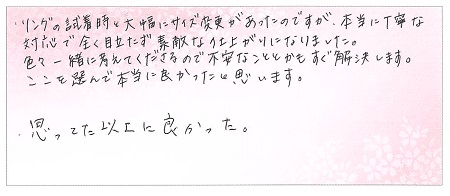 リングの試着時と大幅にサイズ変更があったのですが、本当に丁寧な
対応で全く目立たず素敵な仕上がりになりました。
色々一緒に考えてくださるので不安なこととかもすぐ解決します。
ここを選んで本当に良かったと思います。
・思ってた以上に良かった。